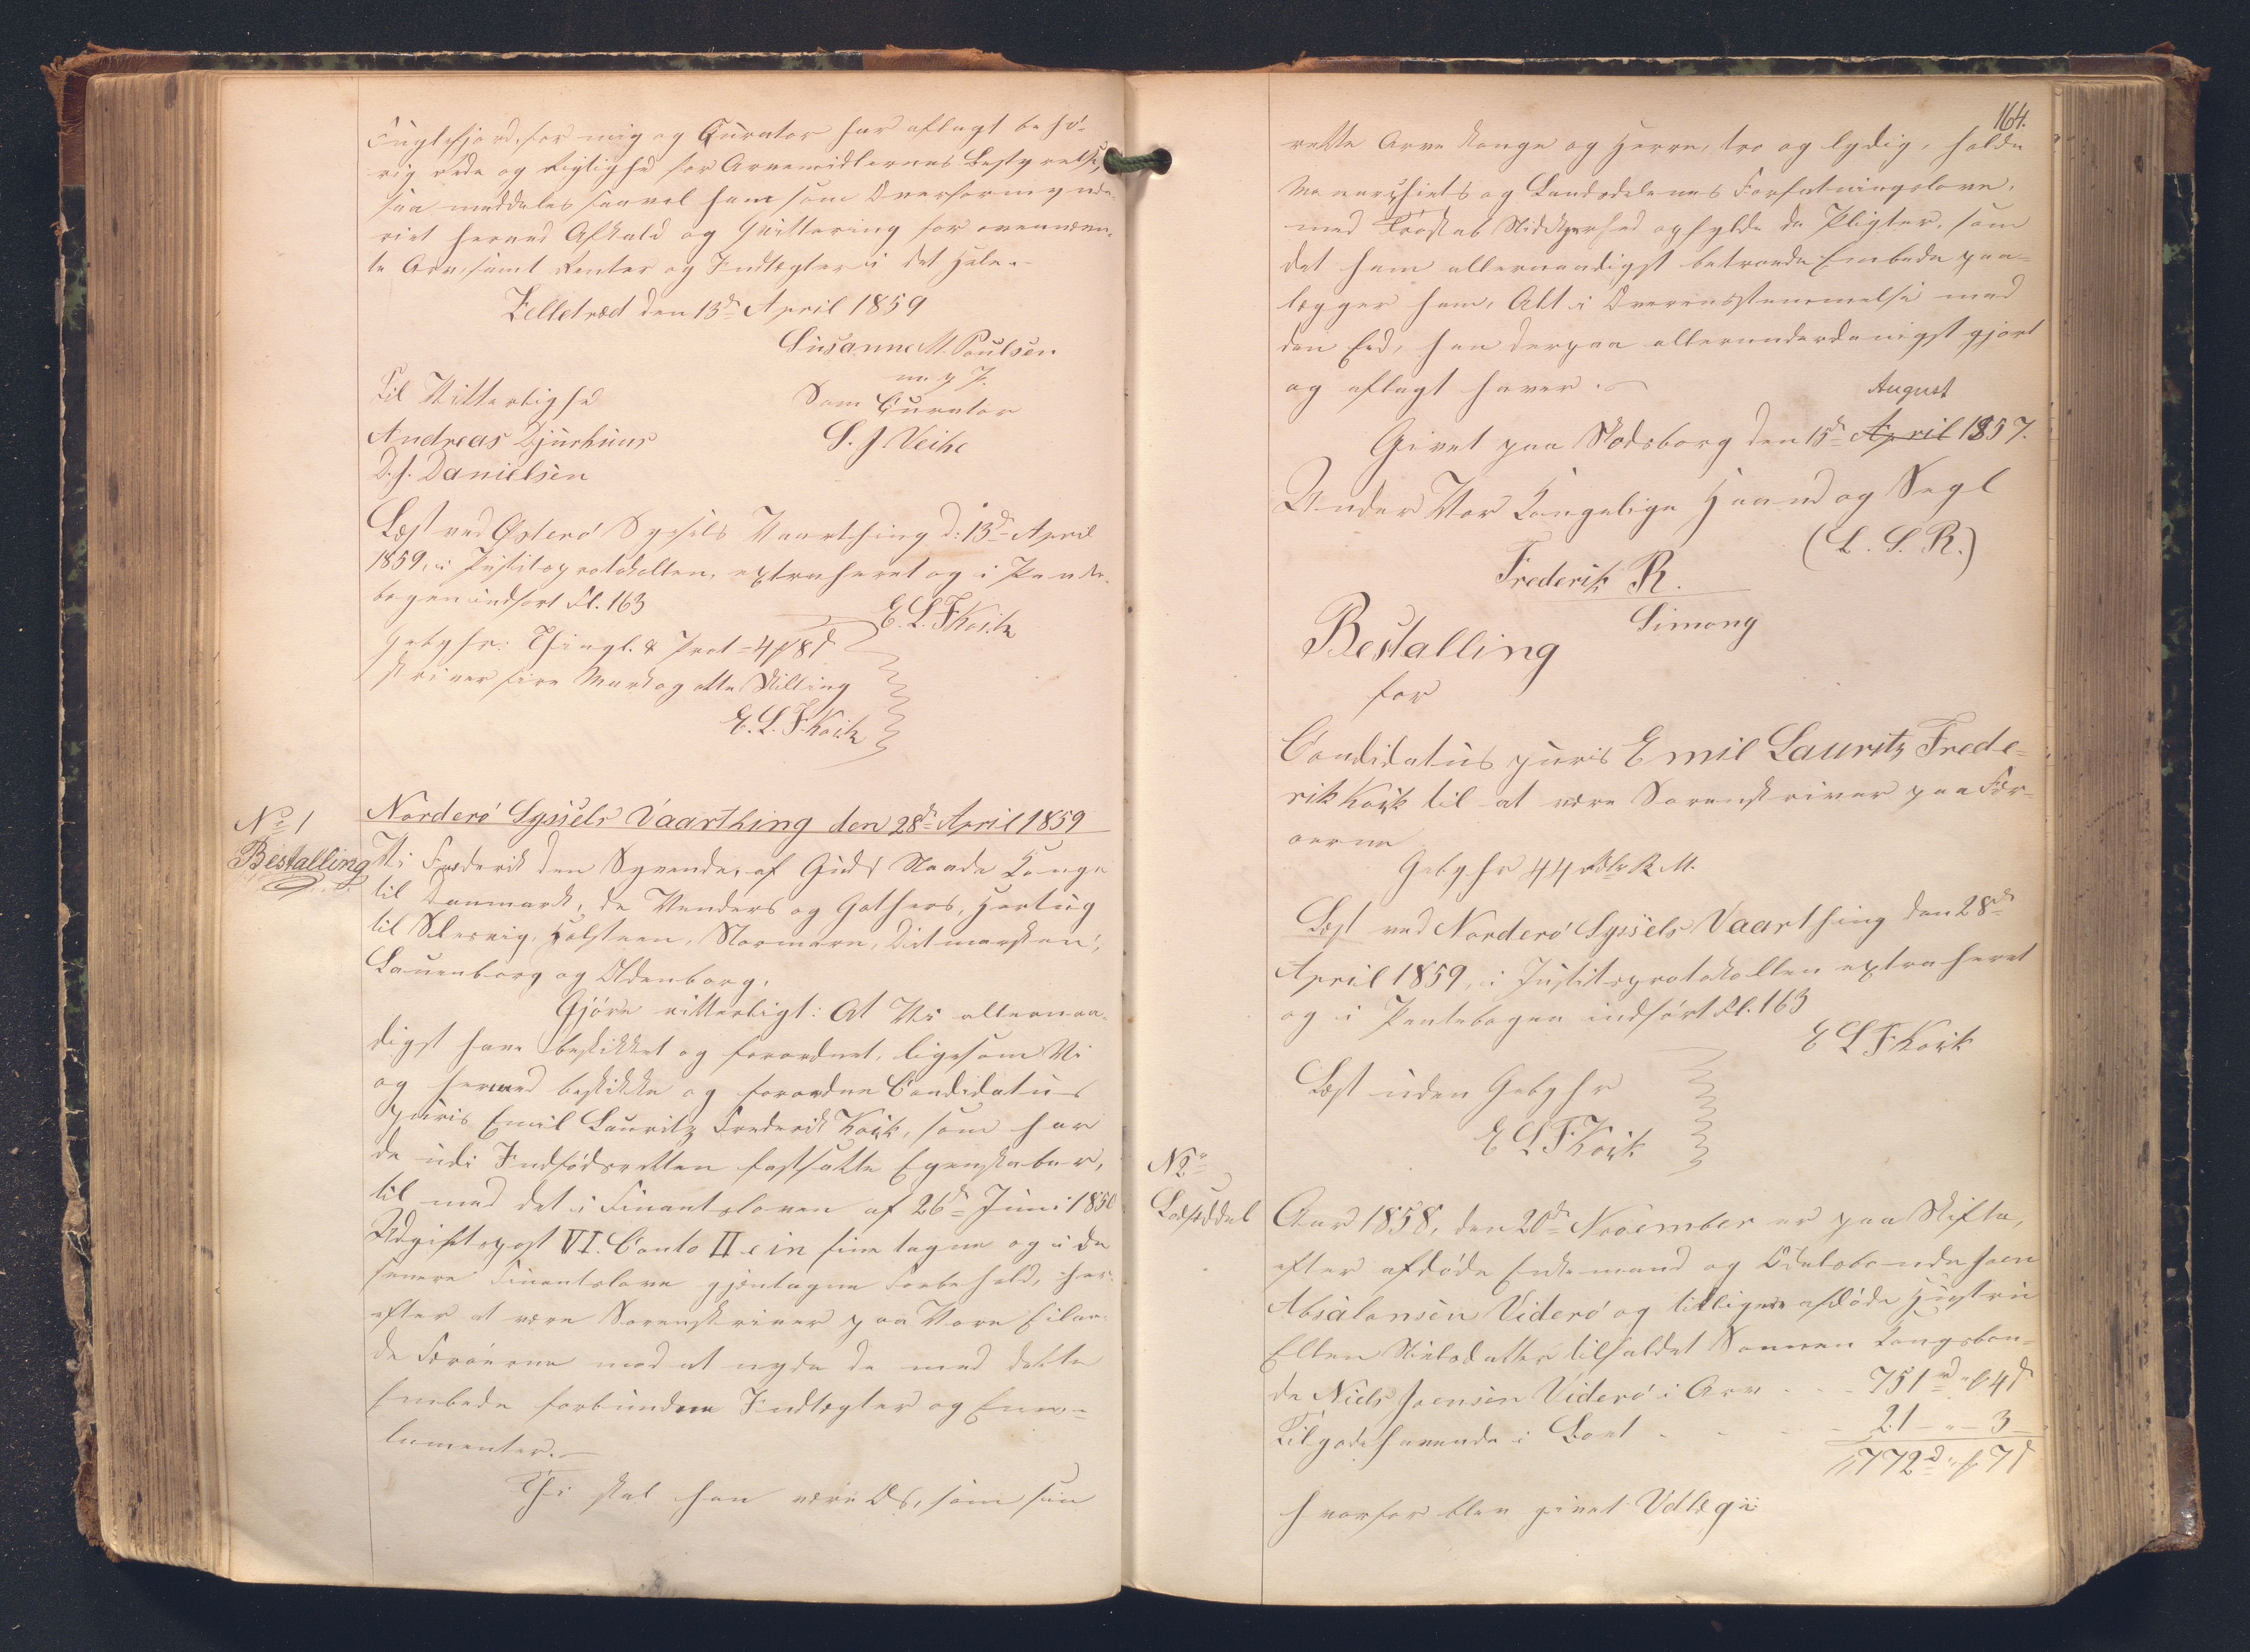 Fuglefjord, for mig og Curator har aflagt behö-
rig Rede og Rigtighed for Arvemidlernes Bestyrelse,
saa meddeles saavel ham som Overformynde-
riet herved Afkald og Qvittering for ovennævn-
te Arv, samt Renter og Indtægter i det Hele.-
Zelletræd den 13de April 1859
Susanne M. Poulsen
m. p. P.
Til Vitterlighed
Som Curator
Andreas Djurhuus
S. J. Veihe
D. J. Danielsen
Læst ved Österö Syssels Vaarthing d: 13de April
1859, i Justitsprotokollen, extraheret og i Pante-
bogen indfört Fl. 163
E. L. F. Koik
Gebyhr: Thingl. & Prot = 4 ₻ 8 ß
skriver fire Mark og otte Skilling
E. L. F. Koik
No 1
Bestalling
Norderö Syssels Vaarthing den 28de April 1859
Vi Frederik den Syvende, af Guds Naade Konge
til Danmark, de Venders og Gothers, Hertug
til Slesvig, Holsteen, Stormarn, Ditmarsken,
Lauenborg og Oldenborg,
Gjöre vitterligt: At Vi allernaa-
digst have beskikket og forordnet, ligesom Vi
og hermed beskikke og forordne Candidatus
juris Emil Lauritz Frederik Koik, som har
de udi Indfödsretten fastsatte Egenskaber,
til med det i Finantsloven af 26de Juni 1850
Udgiftspost VI. Conto II e in fine tagne og i de
senere Finantslove gjentagne Forbehold, her-
efter at være Sorenskriver paa Vore Eilan-
de Færöerne mod at nyde de med dette
Embede forbundne Indtægter og Emo-
lumenter.-
Thi skal han være Os, som sin
164.
rette Arve Konge og Herre, tro og lydig, holde
Monarchiets og Landsdelenes Forfatningslove,
med Troskab Nidkjærhed opfylde de Pligter, som
det ham allernaadigst betroede Embede paa-
lægger ham, Alt i Overensstemmelse med
den Eed, han derpaa allerunderdanigst gjort
og aflagt haver.
August
Givet paa Skodsborg den 15de April 1857.
Under Vor Kongelige Haand og Segl
(L. S. R.)
Frederik R.
Simony
Bestalling
for
Candidatus juris Emil Lauritz Frede-
rik Koik til at være Sorenskriver paa Fær-
øerne
Gebyhr 44 Rdlr R. M.
Læst ved Norderö Syssels Vaarthing den 28de
April 1859, i Justitsprotokollen extraheret
og i Pantebogen indfört Fl. 163
E L F Koik
Læst uden Gebyhr
E L F Koik
No 2
Lodseddel
Aar 1858, den 20de November er paa Skifte,
efter afdöde Enkemand og Odelsbonde Joen
Absalonsen Viderö og tilligere afdöde Hustru
Ellen Nielsdatter tilfaldet Sönnen Kongsbon-
de Niels Joensen Viderö i Arv - - - 751 rd " ₻ 4 ß
Tilgodehavende i Boet - - - - 21 - " - 3 -
772 rd " ₻ 7 ß
hvorfor blev givet Udlæg i: